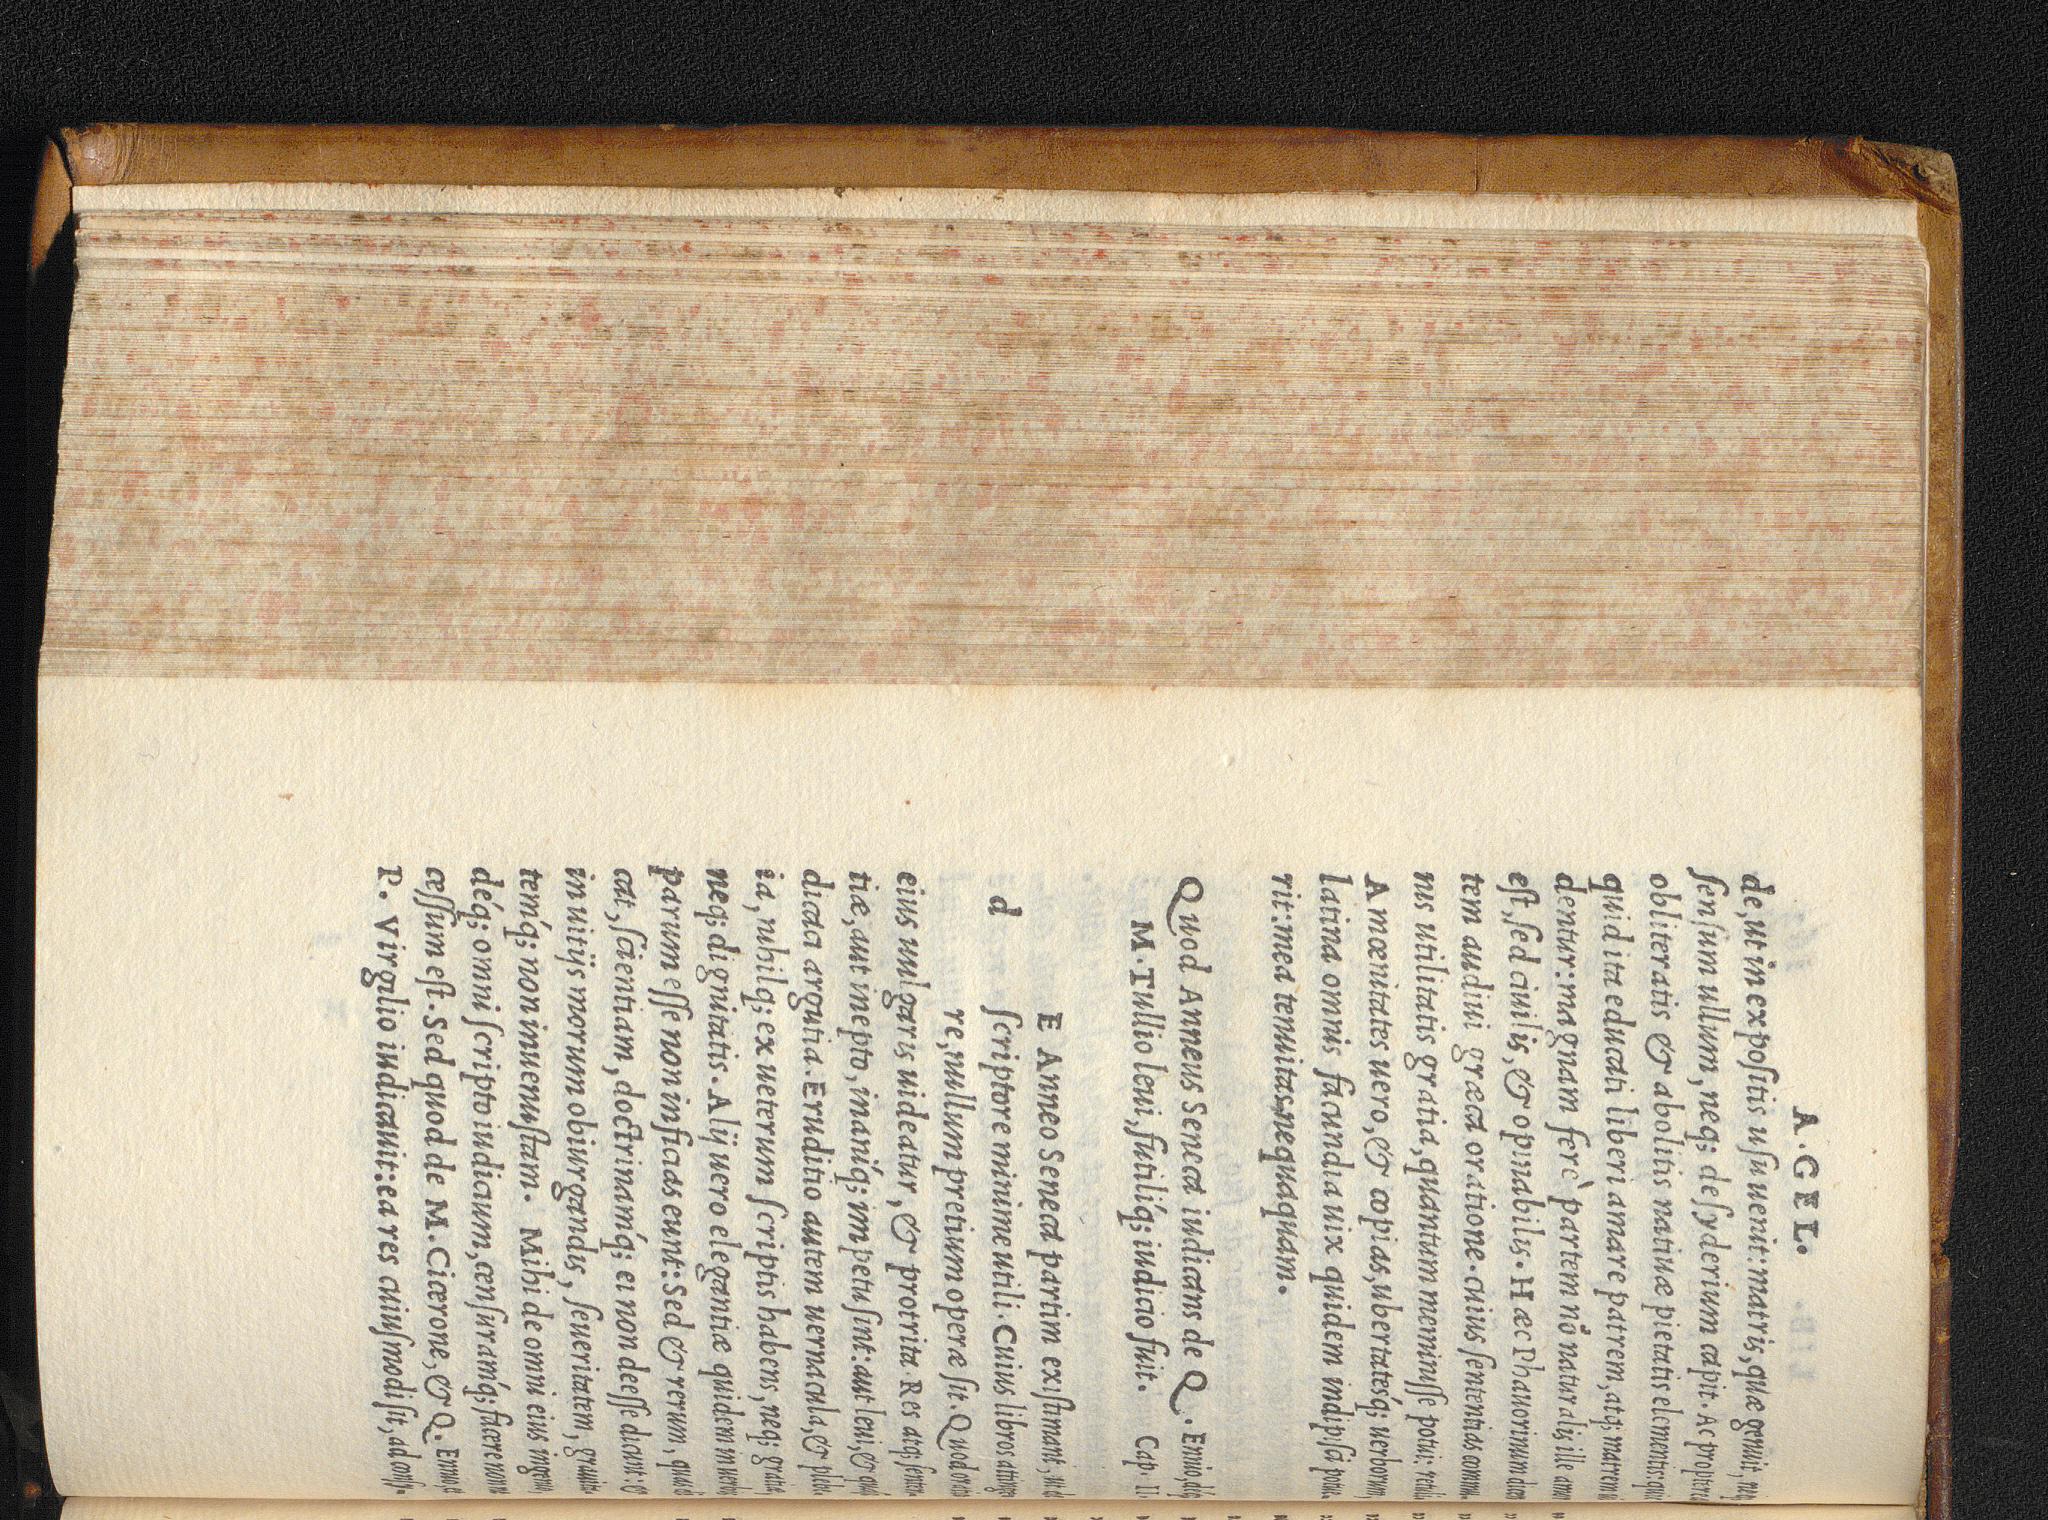 A. GEL.
de, ut in expositis usu uenit: matris, quæ genuit, neq;
sensum ullum, neq; desyderium capit. Ac propterea
obliteratis & abolitis natiuæ pietatis elementis: quic
quid ita educati liberi amare patrem, atq; matrem ui
dentur: magnam ferè partem nõ naturalis ille amor
est, sed ciuilis, & opinabilis. Hæc Phauorinum dicen
tem audiui græca oratione. cuius sententias commu-
nis utilitatis gratia, quantum meminisse potui: retuli.
Amœnitates uero, & copias, ubertatésq; uerborum,
latina omnis facundia uix quidem indipisci potue-
rit: mea tenuitas nequaquam.
Quod Anneus Seneca iudicans de Q. Ennio, déq;
M. Tullio leui, futilíq; iudicio fuit. Cap. II.
d E Anneo Seneca partim existimant, ut de
scriptore minime utili. Cuius libros attinge
re, nullum pretium operæ sit. Quod oratio
eius uulgaris uideatur, & protrita. Res atq; senten-
tiæ, aut inepto, inaníq; impetu sint: aut leui, & quasi
dicaci argutia. Eruditio autem uernacula, & plebe
ia, nihilq; ex ueterum scriptis habens, neq; gratiæ
neq; dignitatis. Alij uero elegantiæ quidem in uerbis
parum esse non inficias eunt: Sed & rerum, quas di
cat, scientiam, doctrinamq́; ei non deesse dicunt: &
in uitijs morum obiurgandis, seueritatem, grauita-
temq́; non inuenustam. Mihi de omni eius ingenio,
déq; omni scripto iudicium, censuramq́; facere non ne
cessum est. Sed quod de M. Cicerone, & Q. Ennio, et
P. Virgilio iudicauit: ea res cuiusmodi sit, ad consy-